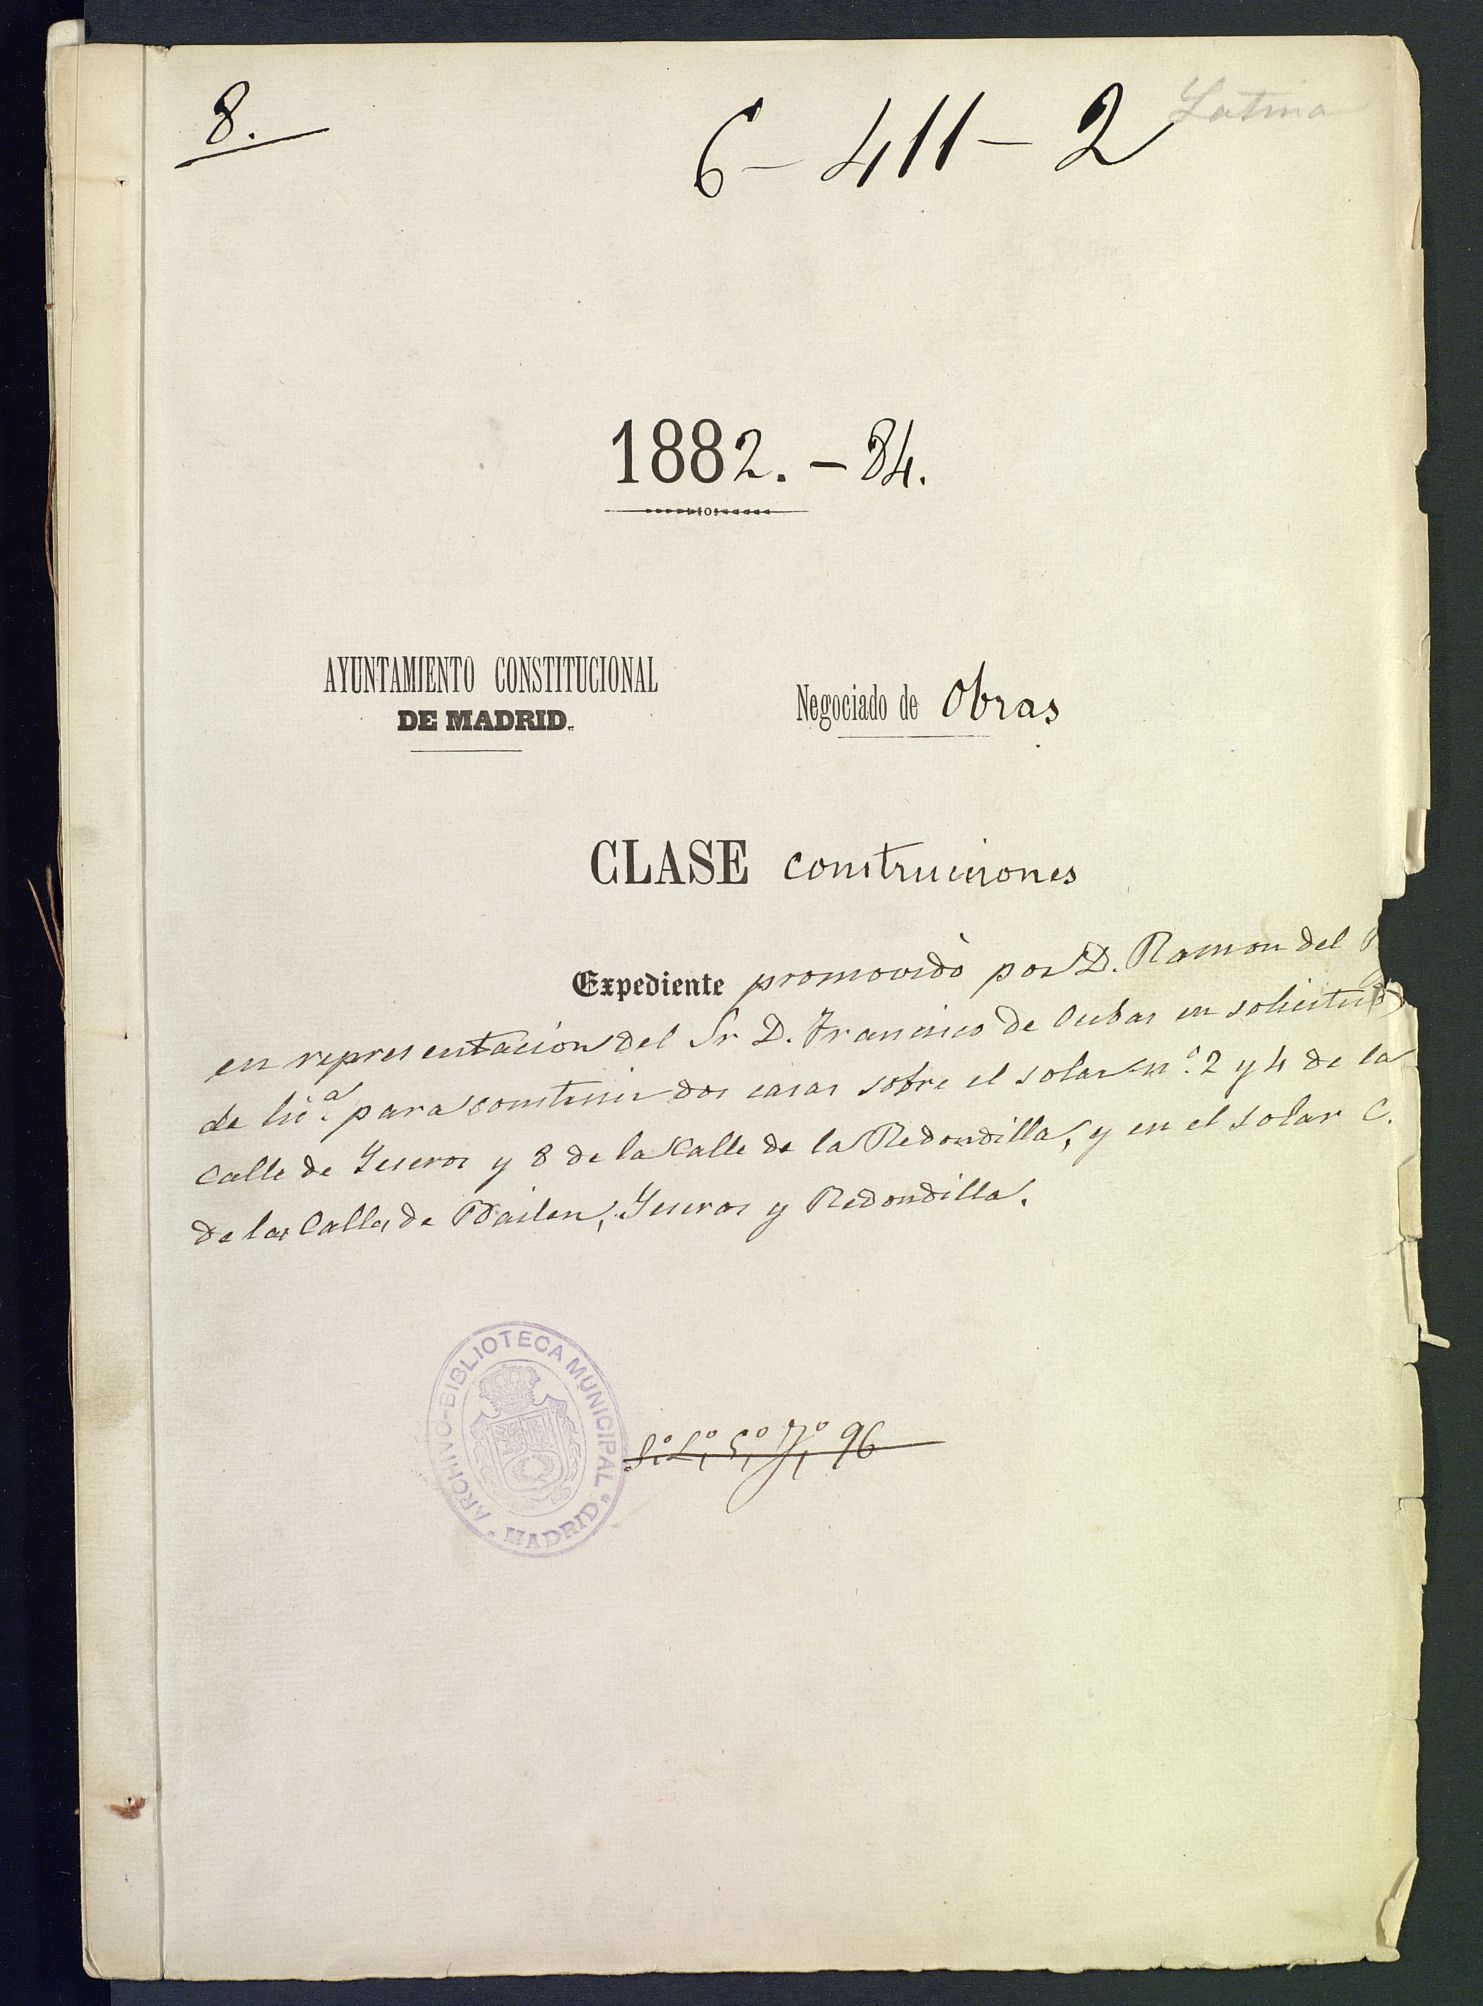 8.
6 - 411 - 2
Latina
1882. - 84.
AYUNTAMIENTO CONSTITUCIONAL
DE MADRID.
Negociado de Obras
CLASE construcciones
Expediente promovido por D. Ramon del
en representacion del Sr D. Francisco de Cubas en solicitud
de lic.ª para construir dos casas sobre el solar n.º 2 y 4 de la
Calle de Yeseros y 8 de la Calle de la Redondilla, y en el solar C.
de las Calles de Bailen, Yeseros y Redondilla.
ARCHIVO-BIBLIOTECA MUNICIPAL
* MADRID *
96